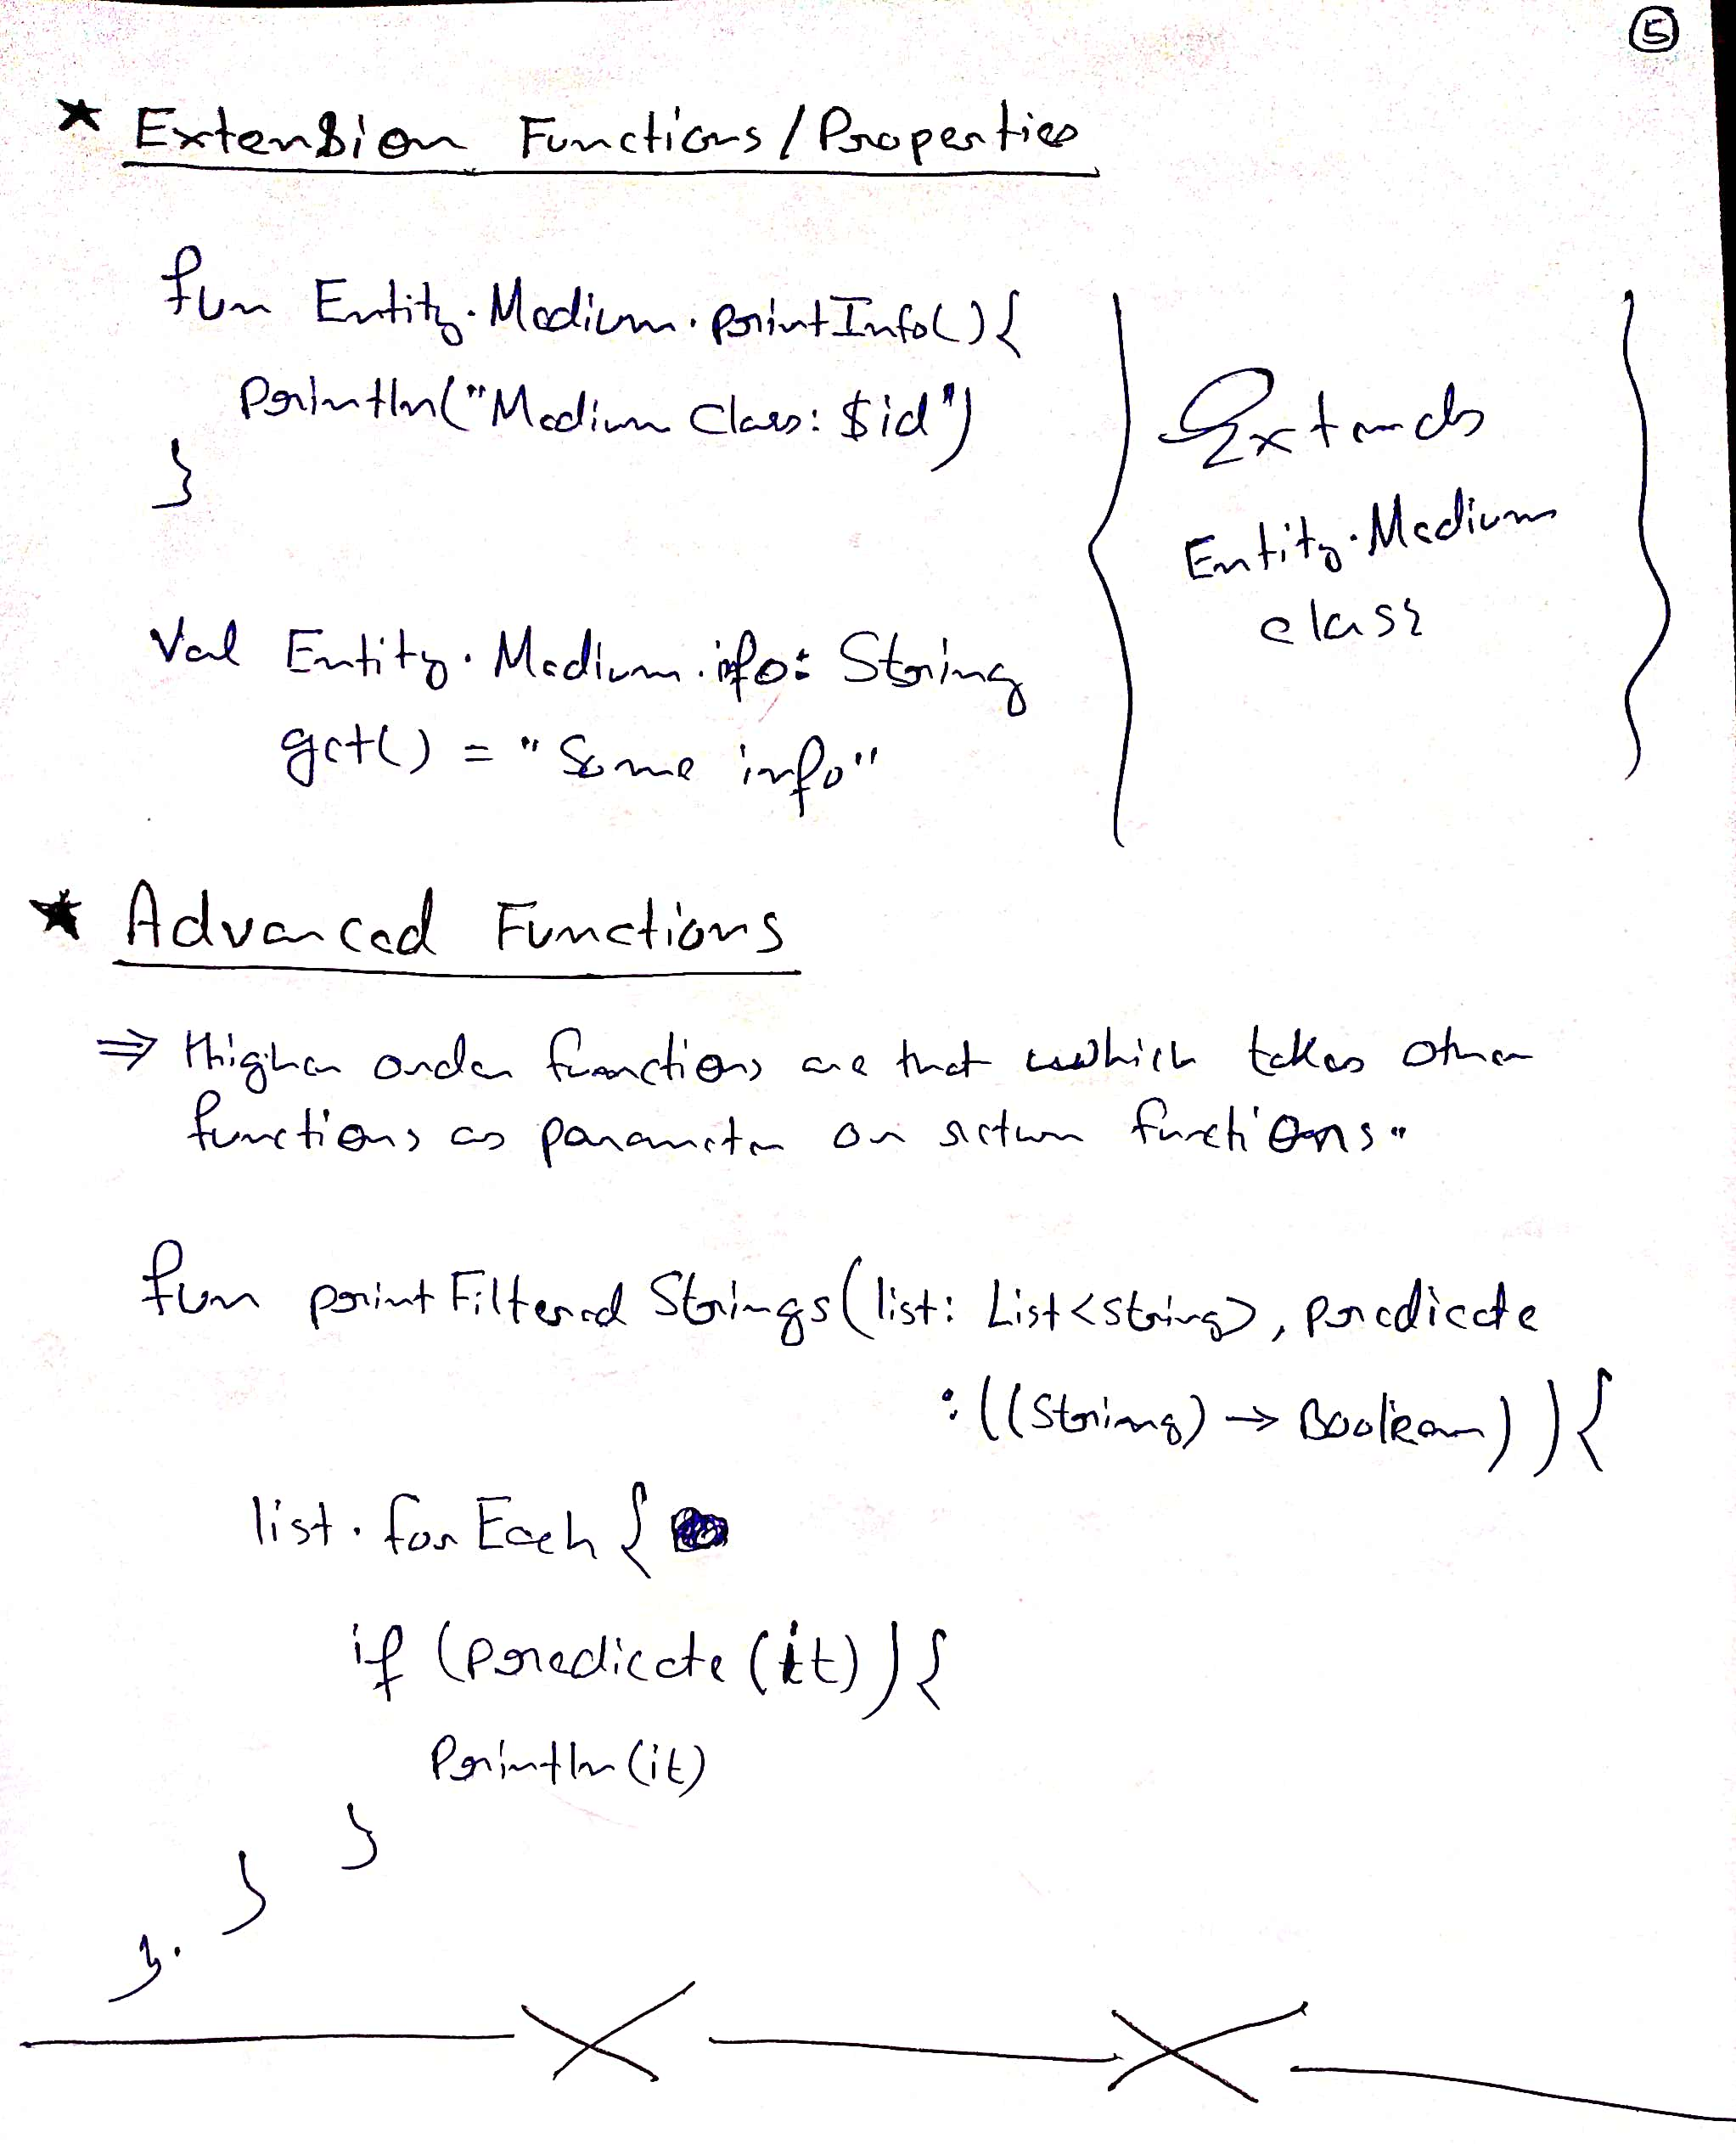 5
* Extension Functions / Properties
fun Entity.Medium.printInfo(){
println("Medium Class: $id")
}
Extends
Entity.Medium
class
Val Entity.Medium.info: String
get() = "Some info"
* Advanced Functions
⇒ Higher order functions are that which takes other
functions as parameter or return functions.
fun printFilteredStrings(list: List<String>, predicate
:((String) → Boolean)){
list.forEach {
if (predicate(it)){
println(it)
}
}
}.